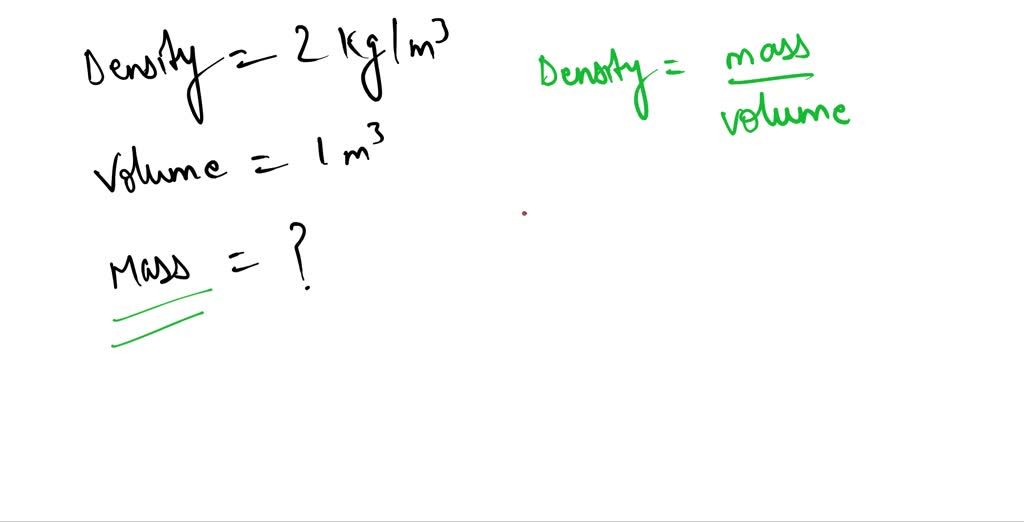 Density = 2 Kg/m³
Volume = 1 m³
Mass = ?
Density = mass
volume